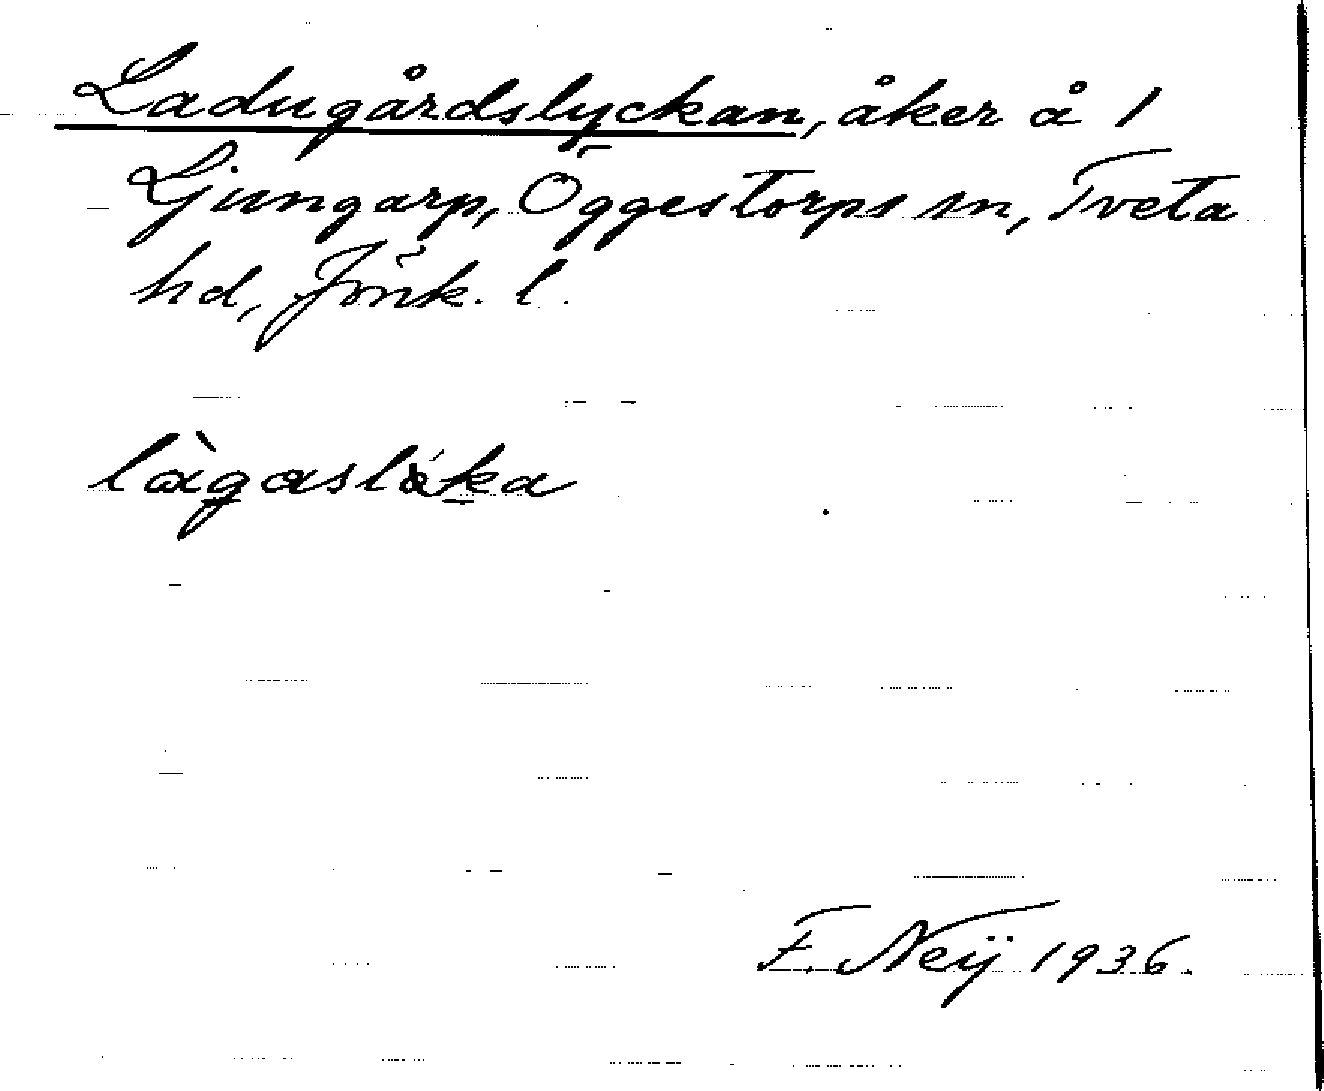 Ladugårdslyckan, åker å 1
Ljungarp, Öggestorps sn, Tveta
hd, Jönk. l.
làgasláka
F. Neij 1936.